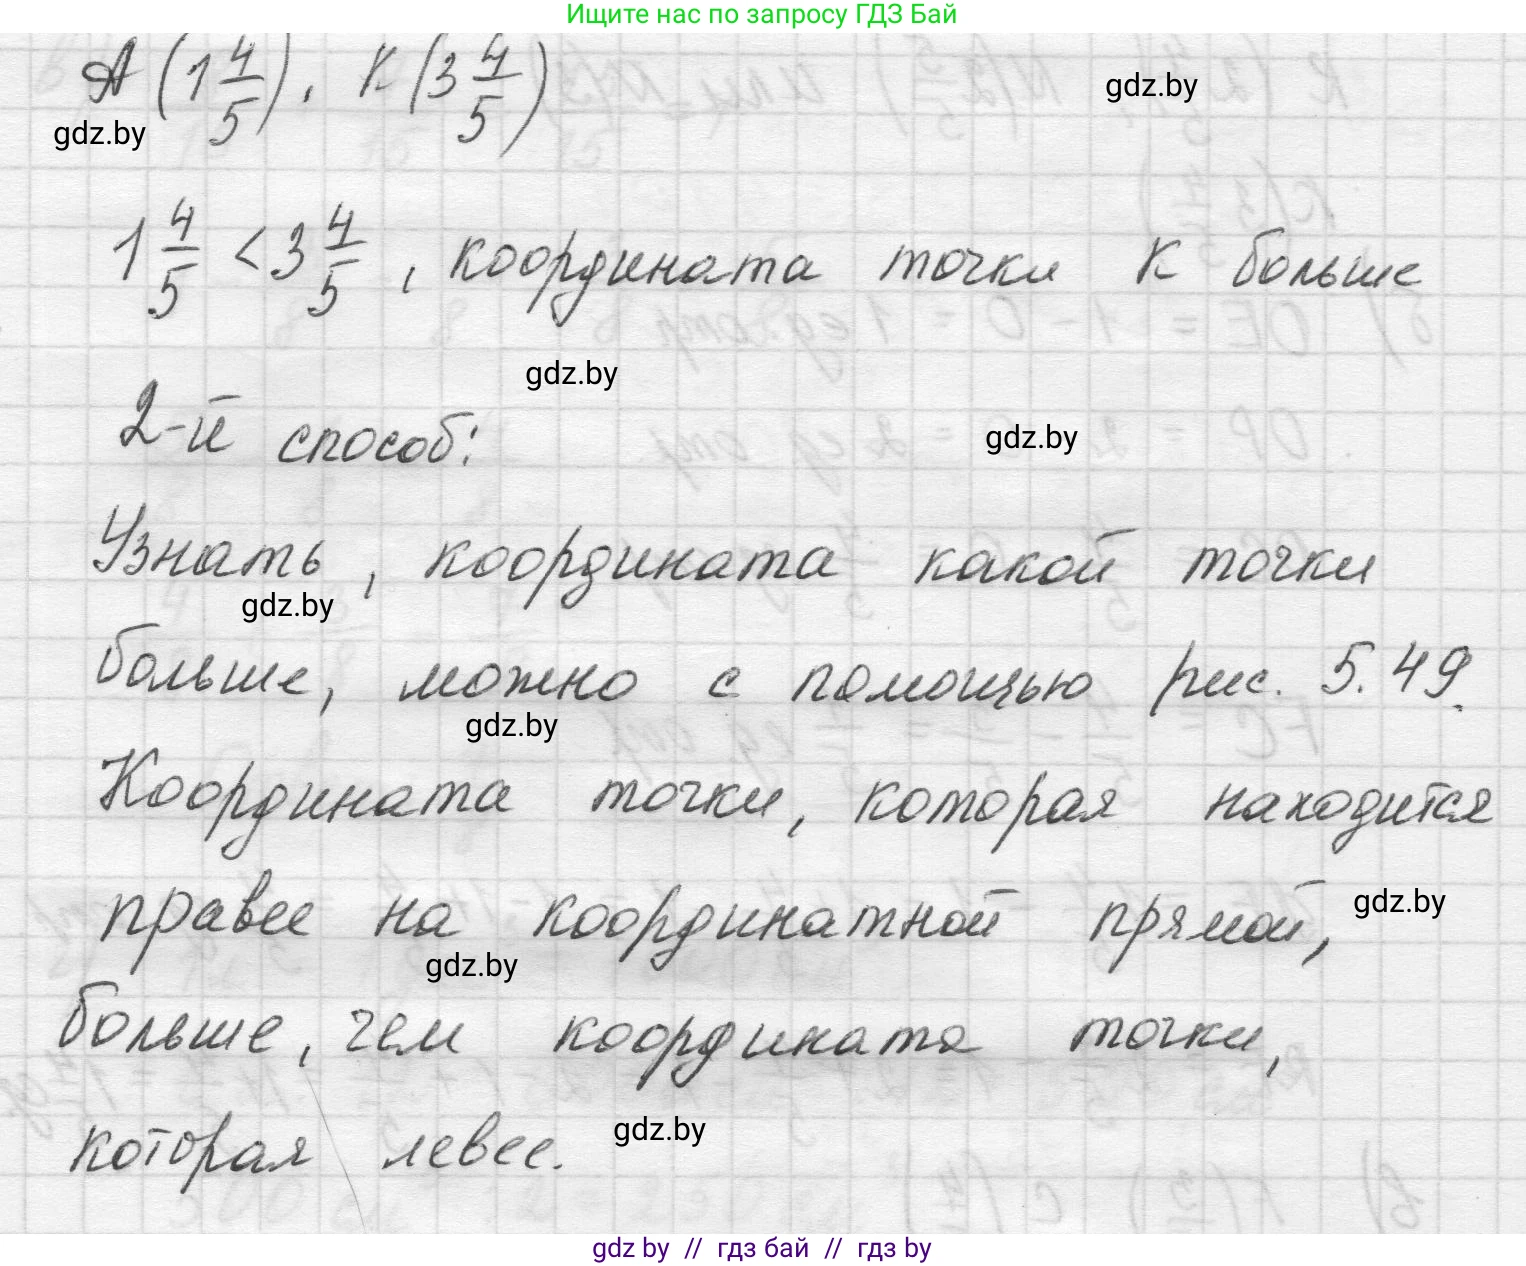 Ищите нас по запросу ГДЗ Бай
A (1 4/5), K (3 4/5)
gdz.by
gdz.by
1 4/5 < 3 4/5, координата точки K больше
gdz.by
2-й способ:
gdz.by
Узнать, координата какой точки
gdz.by
больше, можно с помощью рис. 5.49.
gdz.by
Координата точки, которая находится
правее на координатной прямой,
gdz.by
gdz.by
больше, чем координата точки,
которая левее.
gdz.by
gdz by // гдз бай // гдз by